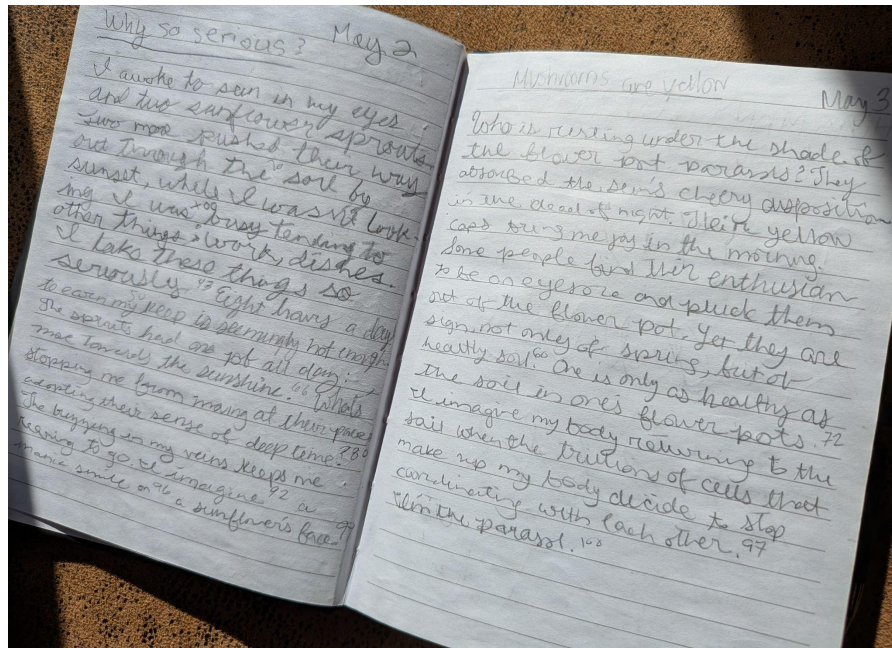 Why so serious? May 2
I awoke to sun in my eyes
and two sunflower sprouts.
Two more pushed their way
out through the soil by
sunset, while I wasn't look-
ing. I was too busy tending to
other things: work, dishes.
I take these things so
seriously 43 Eight hours a day
to earn my keep is seemingly not enough
The sprouts had one job all day:
move towards the sunshine. 66 What's
stopping me from moving at their pace,
adopting their sense of deep time? 80
The buzzing in my veins keeps me
rearing to go. I imagine 92 a
manic smile on 96 a sunflower's face.
Mushrooms are yellow
May 3
Who is resting under the shade of
the flower pot parasols? They
absorbed the sun's cheery disposition
in the dead of night. Their yellow
caps bring me joy in the morning.
Some people find their enthusiasm
to be an eyesore and pluck them
out of the flower pot. Yet they are
sign, not only of spring, but of
healthy soil. 60 One is only as healthy as
the soil in one's flower pots. 72
I imagine my body returning to the
soil when the trillions of cells that
make up my body decide to stop
coordinating with each other. 97
I'm the parasol. 100